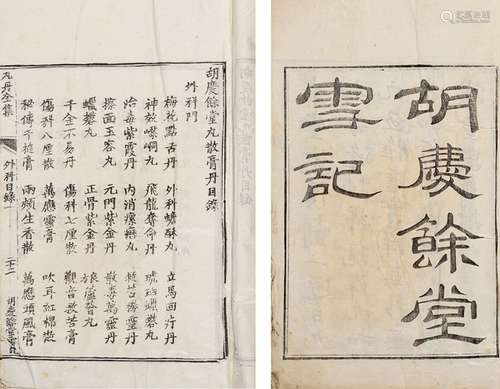 胡慶餘堂
雪記
胡慶餘堂丸散膏丹目錄
外科門
梅花點舌丹 外科蟾酥丸 立馬回疔丹
神效嚼峒丸 飛龍奪命丹 琥珀蠟礬丸
治毒紫霞丹 內消瘰癧丸 靈丹
擦面玉容丸 元門紫金丹 散毒萬靈丹
蠟礬丸 正骨紫金丹 蘆薈丸
千金不易丹 傷科七厘散 觀音救苦膏
傷科八厘散 萬應靈膏 吹耳紅棉散
秘傳千搥膏 兩頰生香散 萬應頭風膏
丸丹全集 外科目錄一 胡慶餘堂雪記